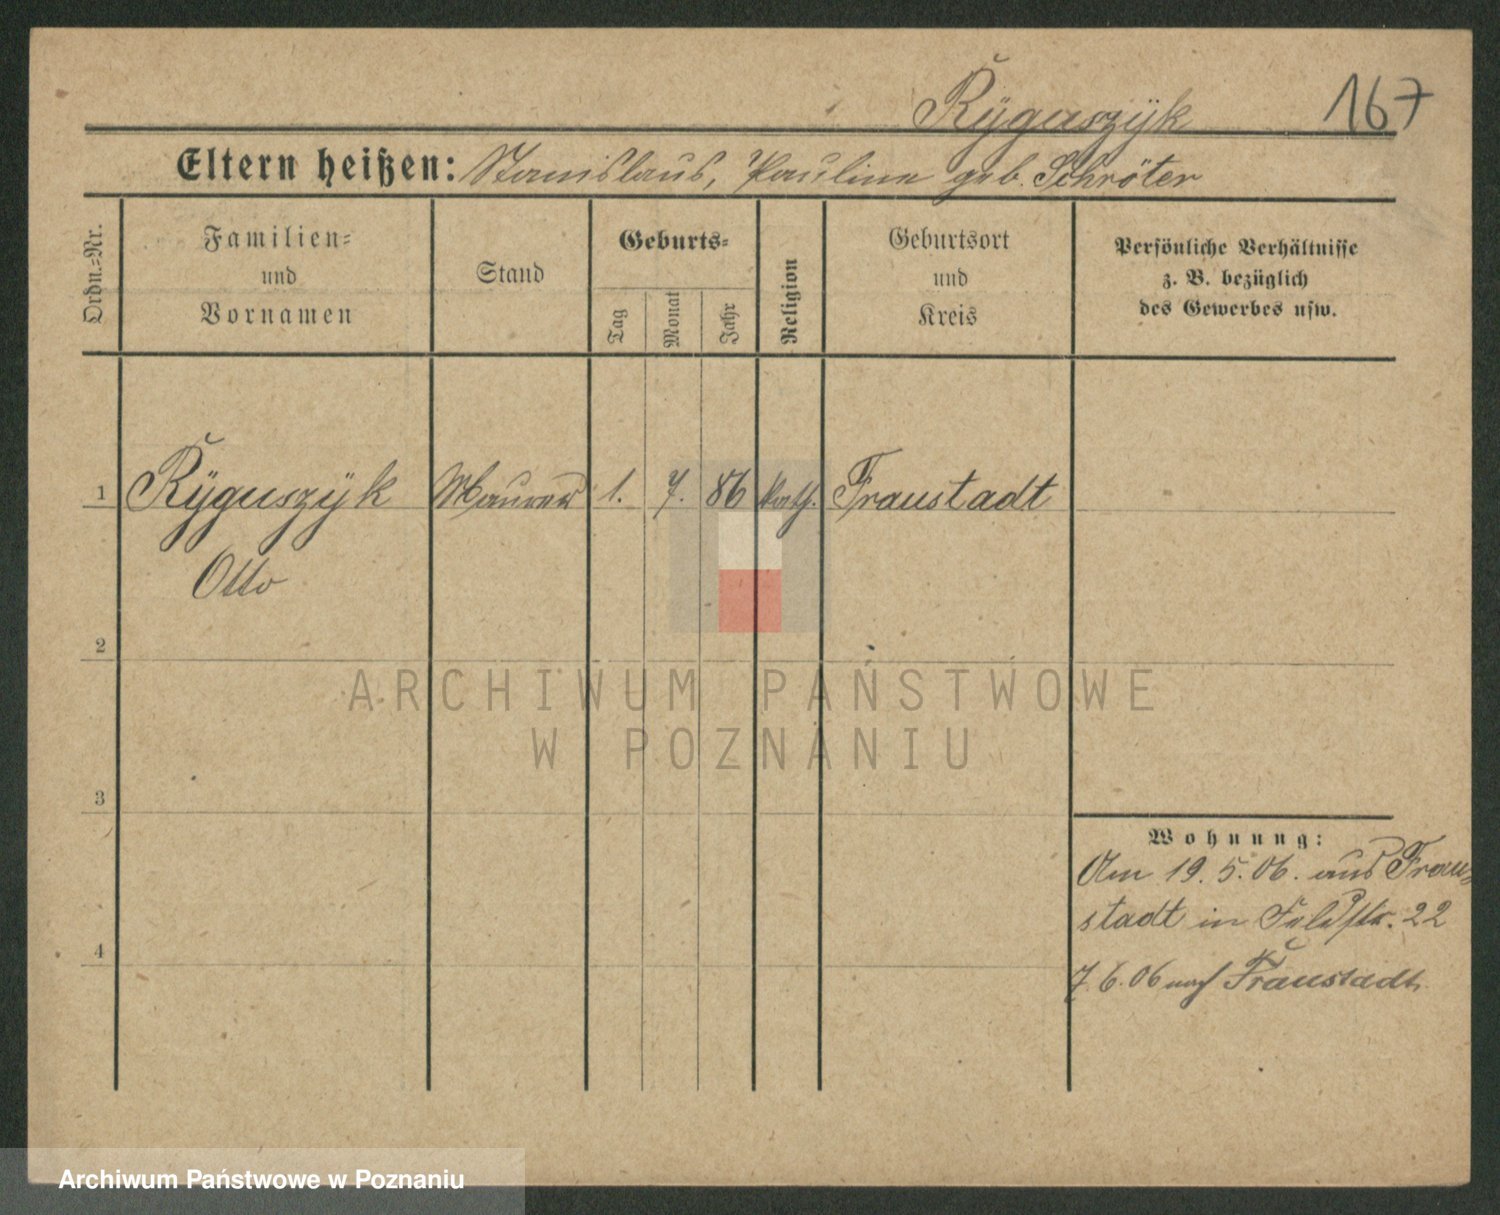 Rÿguszÿk 167
Eltern heißen: Stanislaus, Pauline geb. Schröter
Ordn.-Nr.
Familien-
und
Vornamen
Stand
Geburts-
Tag
Monat
Jahr
Religion
Geburtsort
und
Kreis
Persönliche Verhältnisse
z. B. bezüglich
des Gewerbes usw.
1 Rÿguszÿk Maurer 1. 7. 86 kath. Fraustadt
Otto
2
ARCHIWUM PAŃSTWOWE
W POZNANIU
3
Wohnung:
Am 19. 5. 06. aus Frau-
stadt in Feldstr. 22
4
7. 6. 06 nach Fraustadt.
Archiwum Państwowe w Poznaniu